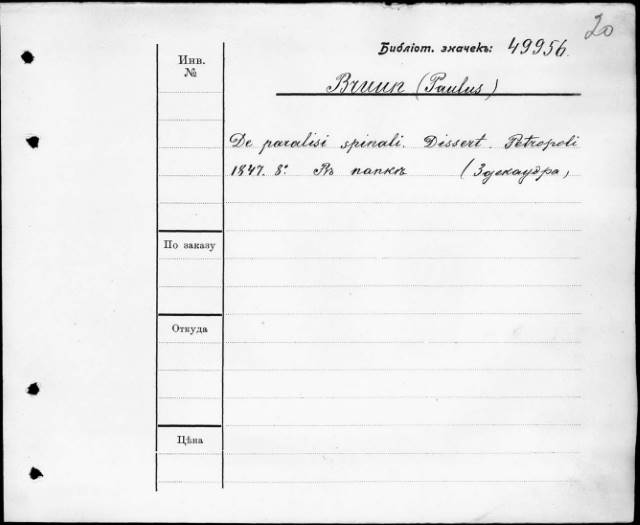 20
Библіот. значекъ: 49956.
Инв.
№
Bruun (Paulus)
De paralisi spinali. Dissert. Petropoli
1847. 8°. Въ папкѣ (Здекауэра,
По заказу
Откуда
Цѣна